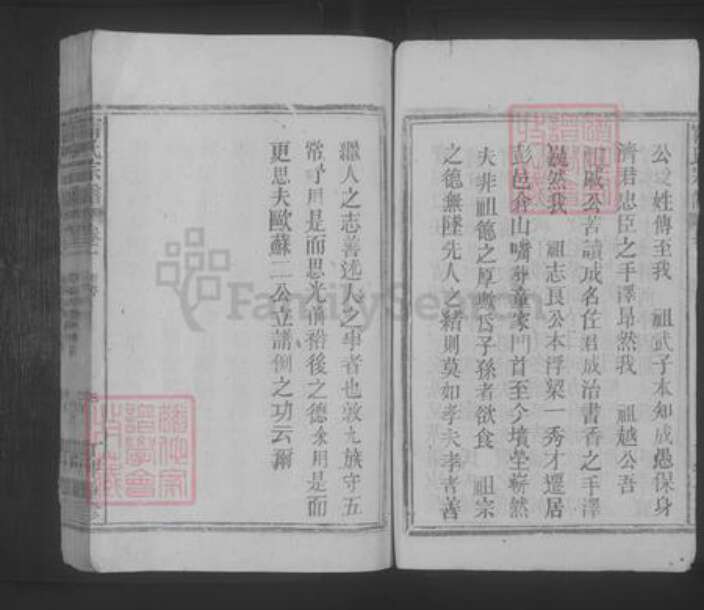 公受姓傳至我　祖武子本知成愚保身
濟君忠臣之手澤昂然我　祖越公吾
祖戚公苦讀成名任君成治書香之手澤
巍然我　祖志良公本浮梁一秀才遷居
彭邑俞山嘴發章家門首至今墳塋嶄然
夫非祖德之厚與爲子孫者欲食　祖宗
之德無墜先人之緒則莫如孝夫孝者善
繼人之志善述人之事者也敦九族守五
常予用是而思光前裕後之德余用是而
更思夫歐蘇二公立譜例之功云爾
氏宗譜
卷
FamilySearch